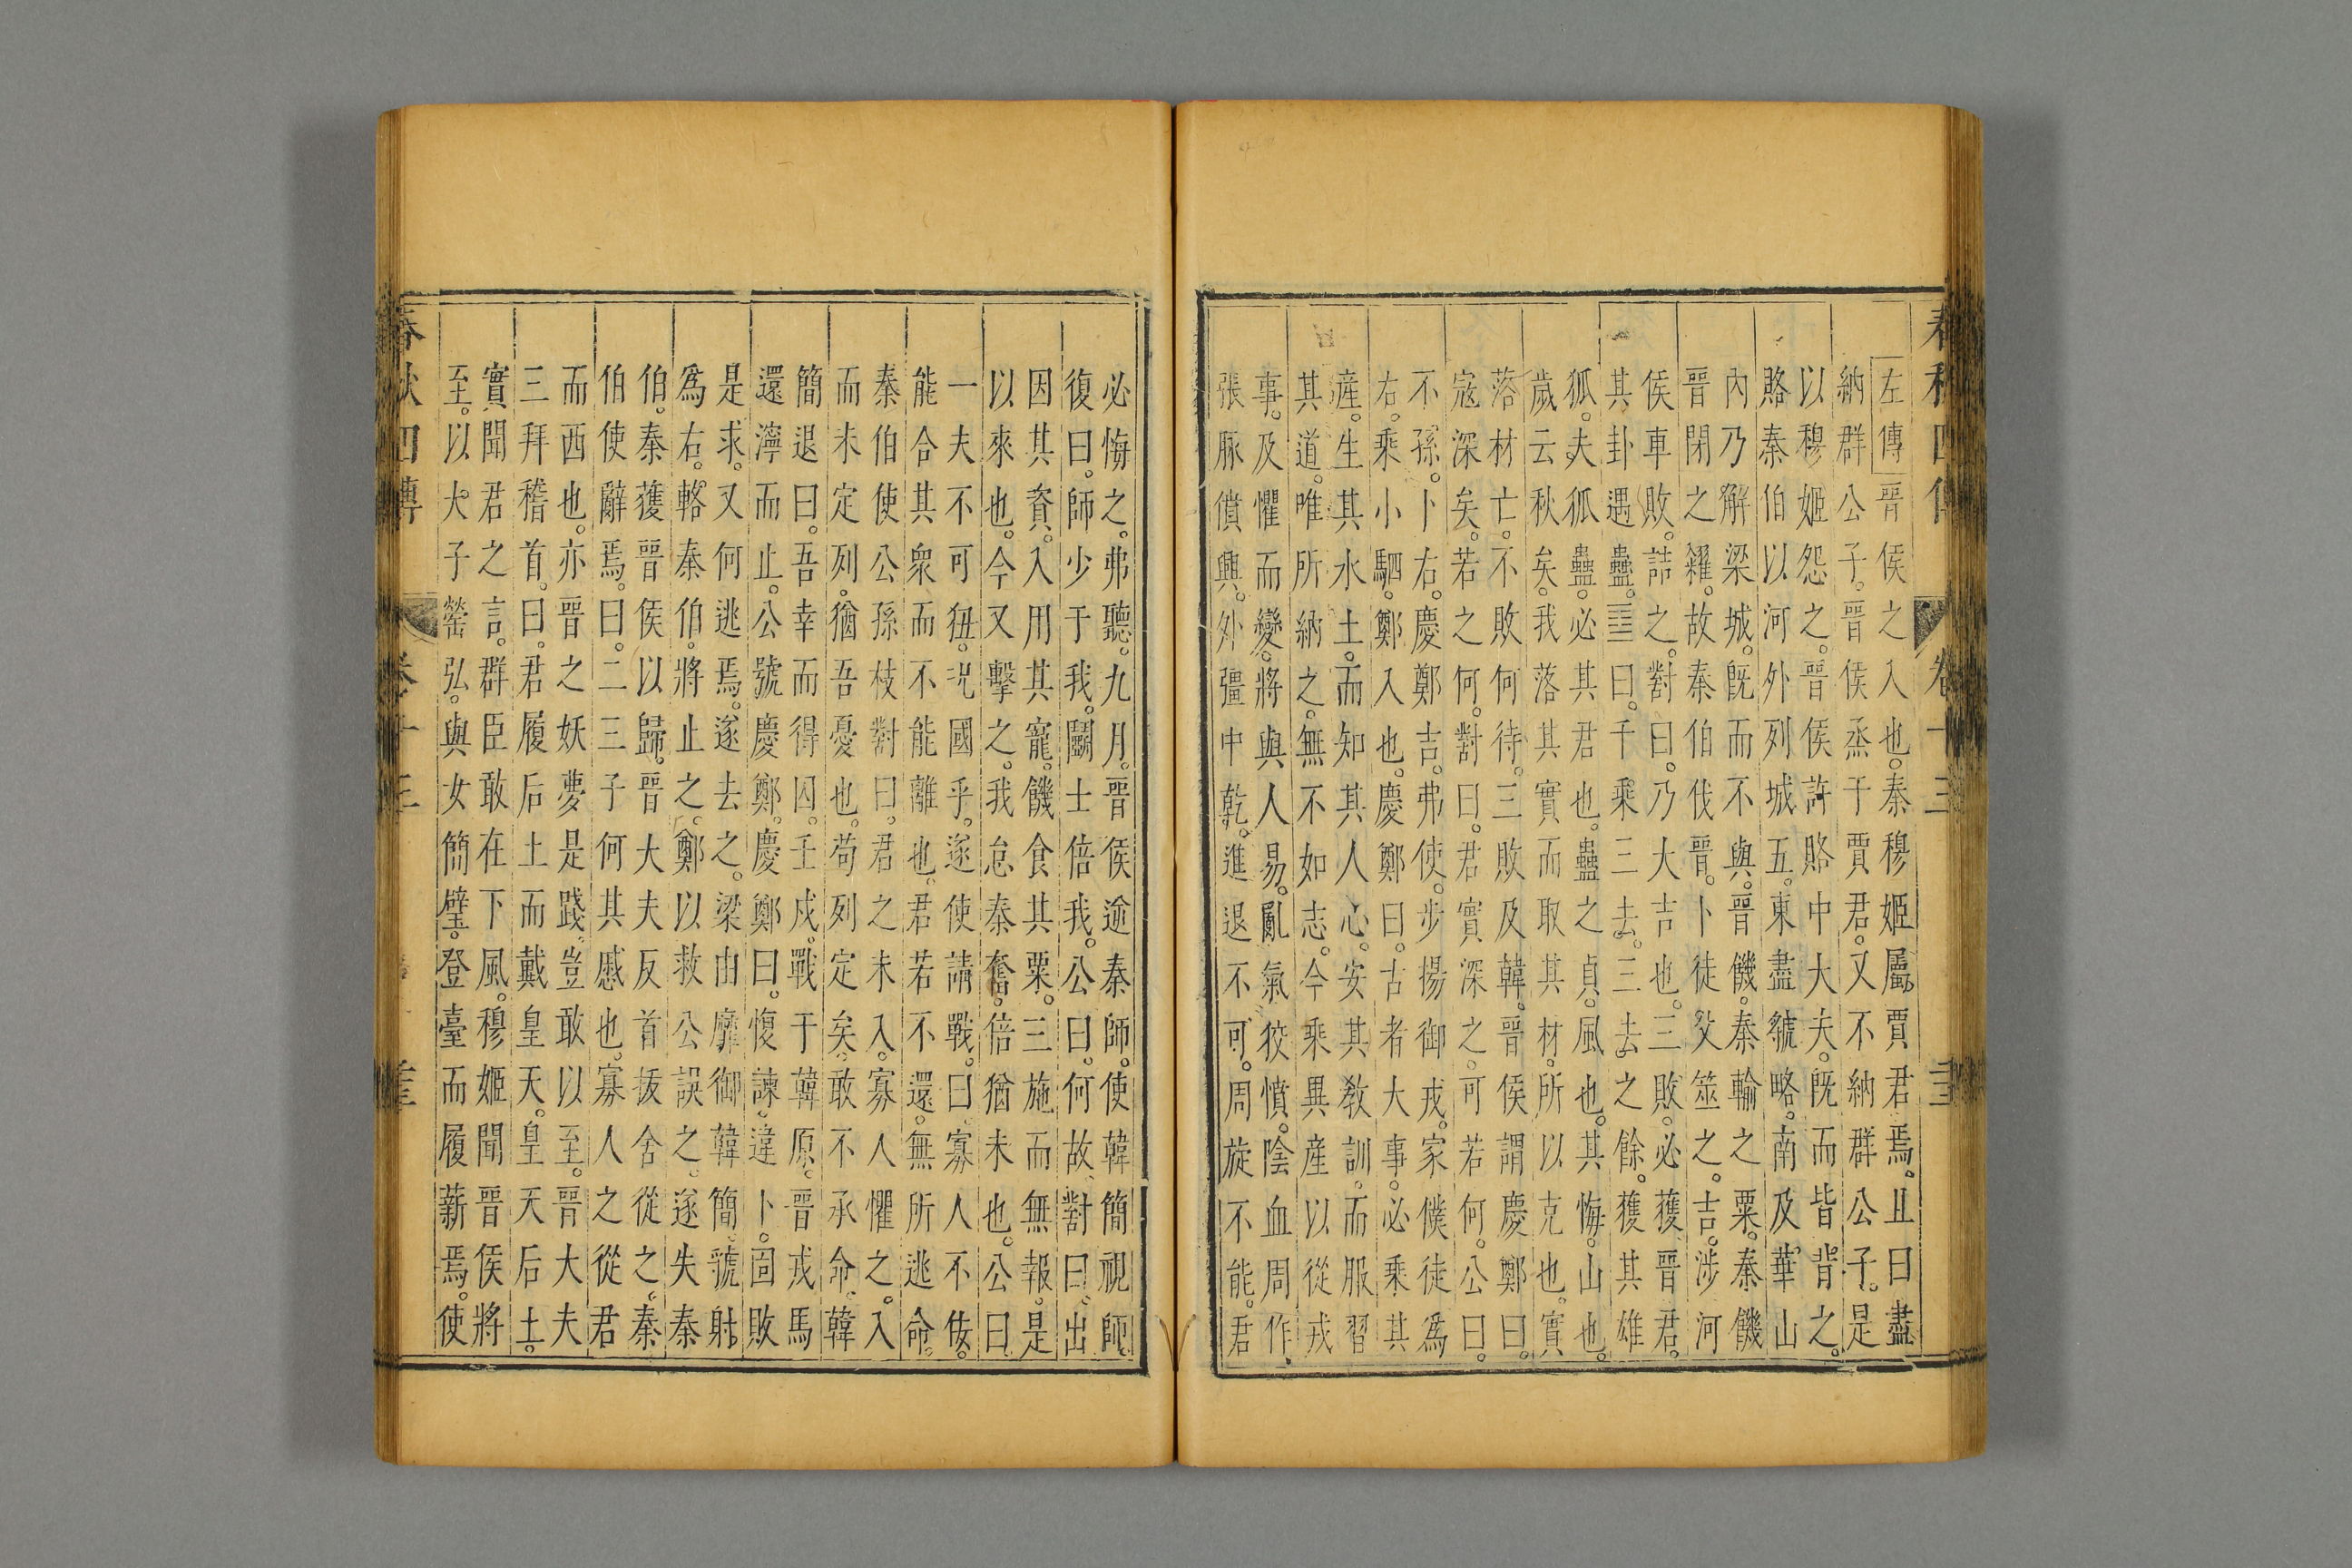 春秋四傳
卷十三
左傳晉侯之入也秦穆姬屬賈君焉且曰盡
納群公子晉侯烝于賈君又不納群公子是
以穆姬怨之晉侯許賂中大夫既而皆背之
賂秦伯以河外列城五東盡虢略南及華山
內乃解梁城既而不與晉饑秦輸之粟秦饑
晉閉之糴故秦伯伐晉卜徒父筮之吉涉河
侯車敗詰之對曰乃大吉也三敗必獲晉君
其卦遇蠱䷑曰千乘三去三去之餘獲其雄
狐夫狐蠱必其君也蠱之貞風也其悔山也
歲云秋矣我落其實而取其材所以克也實
落材亡不敗何待三敗及韓晉侯謂慶鄭曰
寇深矣若之何對曰君實深之可若何公曰
不孫卜右慶鄭吉弗使步揚御戎家僕徒爲
右乘小駟鄭入也慶鄭曰古者大事必乘其
產生其水土而知其人心安其教訓而服習
其道唯所納之無不如志今乘異產以從戎
事及懼而變將與人易亂氣狡憤陰血周作
張脉僨興外彊中乾進退不可周旋不能君
必悔之弗聽九月晉侯逆秦師使韓簡視師
復曰師少于我鬬士倍我公曰何故對曰出
因其資入用其寵饑食其粟三施而無報是
以來也今又擊之我怠秦奮倍猶未也公曰
一夫不可狃况國乎遂使請戰曰寡人不佞
能合其衆而不能離也君若不還無所逃命
秦伯使公孫枝對曰君之未入寡人懼之入
而未定列猶吾憂也苟列定矣敢不承命韓
簡退曰吾幸而得囚壬戌戰于韓原晉戎馬
還濘而止公號慶鄭慶鄭曰愎諫違卜固敗
是求又何逃焉遂去之梁由靡御韓簡虢射
爲右輅秦伯將止之鄭以救公誤之遂失秦
伯秦獲晉侯以歸晉大夫反首拔舍從之秦
伯使辭焉曰二三子何其慼也寡人之從君
而西也亦晉之妖夢是踐豈敢以至晉大夫
三拜稽首曰君履后土而戴皇天皇天后土
實聞君之言群臣敢在下風穆姬聞晉侯將
至以大子罃弘與女簡璧登臺而履薪焉使
春秋四傳
卷十三